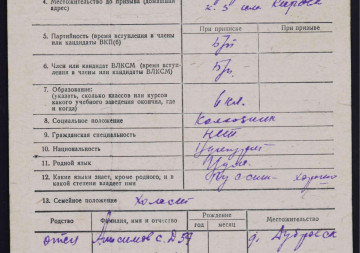 4. Местожительство до призыва (домашний
адрес)
При приписке
При призыве
5. Партийность (время вступления в члены
или кандидаты ВКП(б)
Б/п
6. Член или кандидат ВЛКСМ (время вступ-
ления в члены или кандидаты ВЛКСМ)
7. Образование:
(указать, сколько классов или курсов
какого учебного заведения окончил, где
и когда)
6 кл.
8. Социальное положение
Колхозник
9. Гражданская специальность
нет
10. Национальность
11. Родной язык
12. Какие языки знает, кроме родного, и в
какой степени владеет ими
Русский хорошо
13. Семейное положение Холост
Родство
Фамилия, имя и отчество
Рождение
Местожительство
год
месяц
отец Анисимов С. Д. 59
д. Дубровск